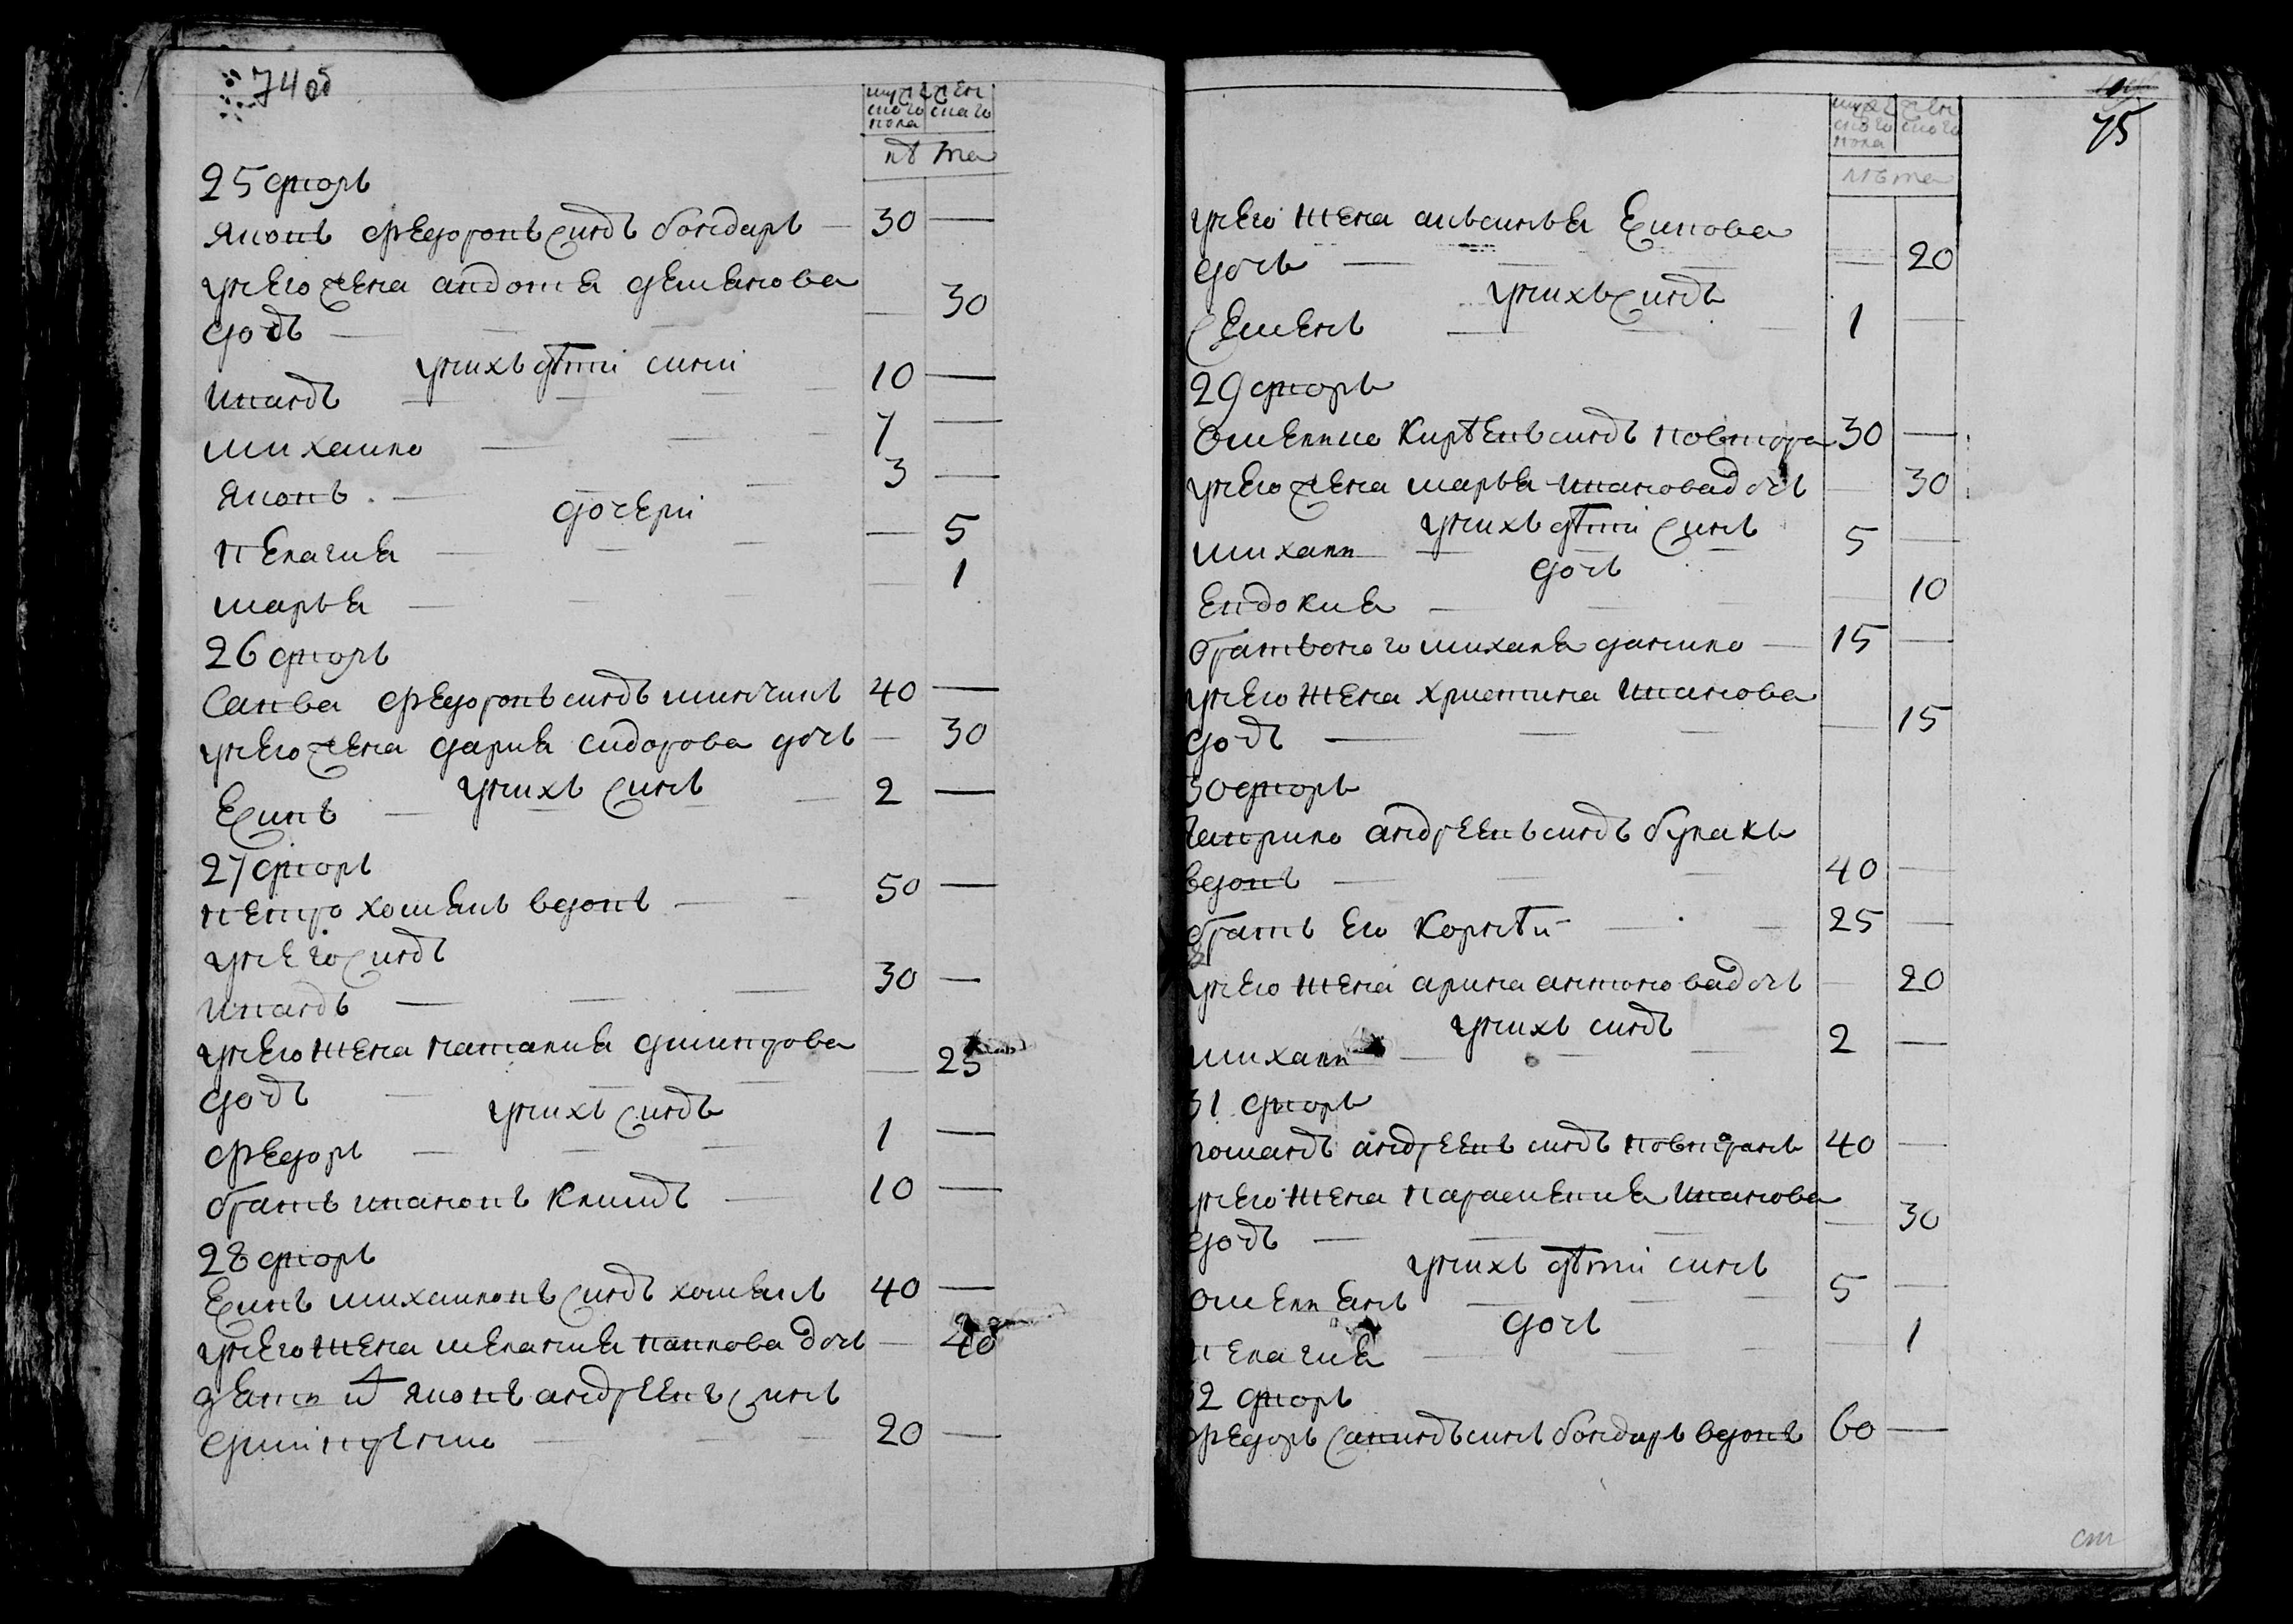 74 об
мужескогопола женскаго
лѣта
25 дворъ
Яковъ Федоровъ синъ бондаръ 30 —
унего жена авдотя демянова
дочъ — 30
унихъ дѣти сини
иванъ 10 —
михаило 7 —
яковъ 3 —
дочери
пелагия — 5
маръя — 1
26 дворъ
Савва Федоровъ синъ минчинъ 40 —
унего жена дария сидорова дочъ — 30
унихъ синъ
Есипъ 2 —
27 дворъ
петро хомякъ вдовъ 50 —
унего синъ
иванъ 30 —
унего жена наталия дмитрова
дочъ — 25
унихъ синъ
Федоръ 1 —
братъ ивановъ климъ 10 —
28 дворъ
Есипъ михаиловъ синъ хомякъ 40 —
унего жена мелания павлова дочъ — 40
зять и яковъ андреевъ синъ
20 —
75
мужескогопола женскаго
лѣта
унего жена аксинья Есипова
дочъ — 20
унихъ синъ
Семенъ 1 —
29 дворъ
Омелко Кирѣевъ синъ повтора 30 —
унего жена маръя иванова дочъ — 30
унихъ дѣти синъ
михаил 5 —
дочъ
Евдокия — 10
братъ оного михаила данило 15 —
унего жена христина иванова
дочъ — 15
30 дворъ
гаврило андреевъ синъ булахъ
вдовъ 40 —
братъ его Корнѣй 25 —
унего жена арина антонова дочъ — 20
унихъ синъ
михаил 2 —
31 дворъ
романъ андреевъ синъ 40 —
унего жена параскевия иванова
дочъ — 30
унихъ дѣти синъ
омелянъ 5 —
дочъ
пелагия — 1
32 дворъ
Федоръ саввинъ синъ бондаръ вдовъ 60 —